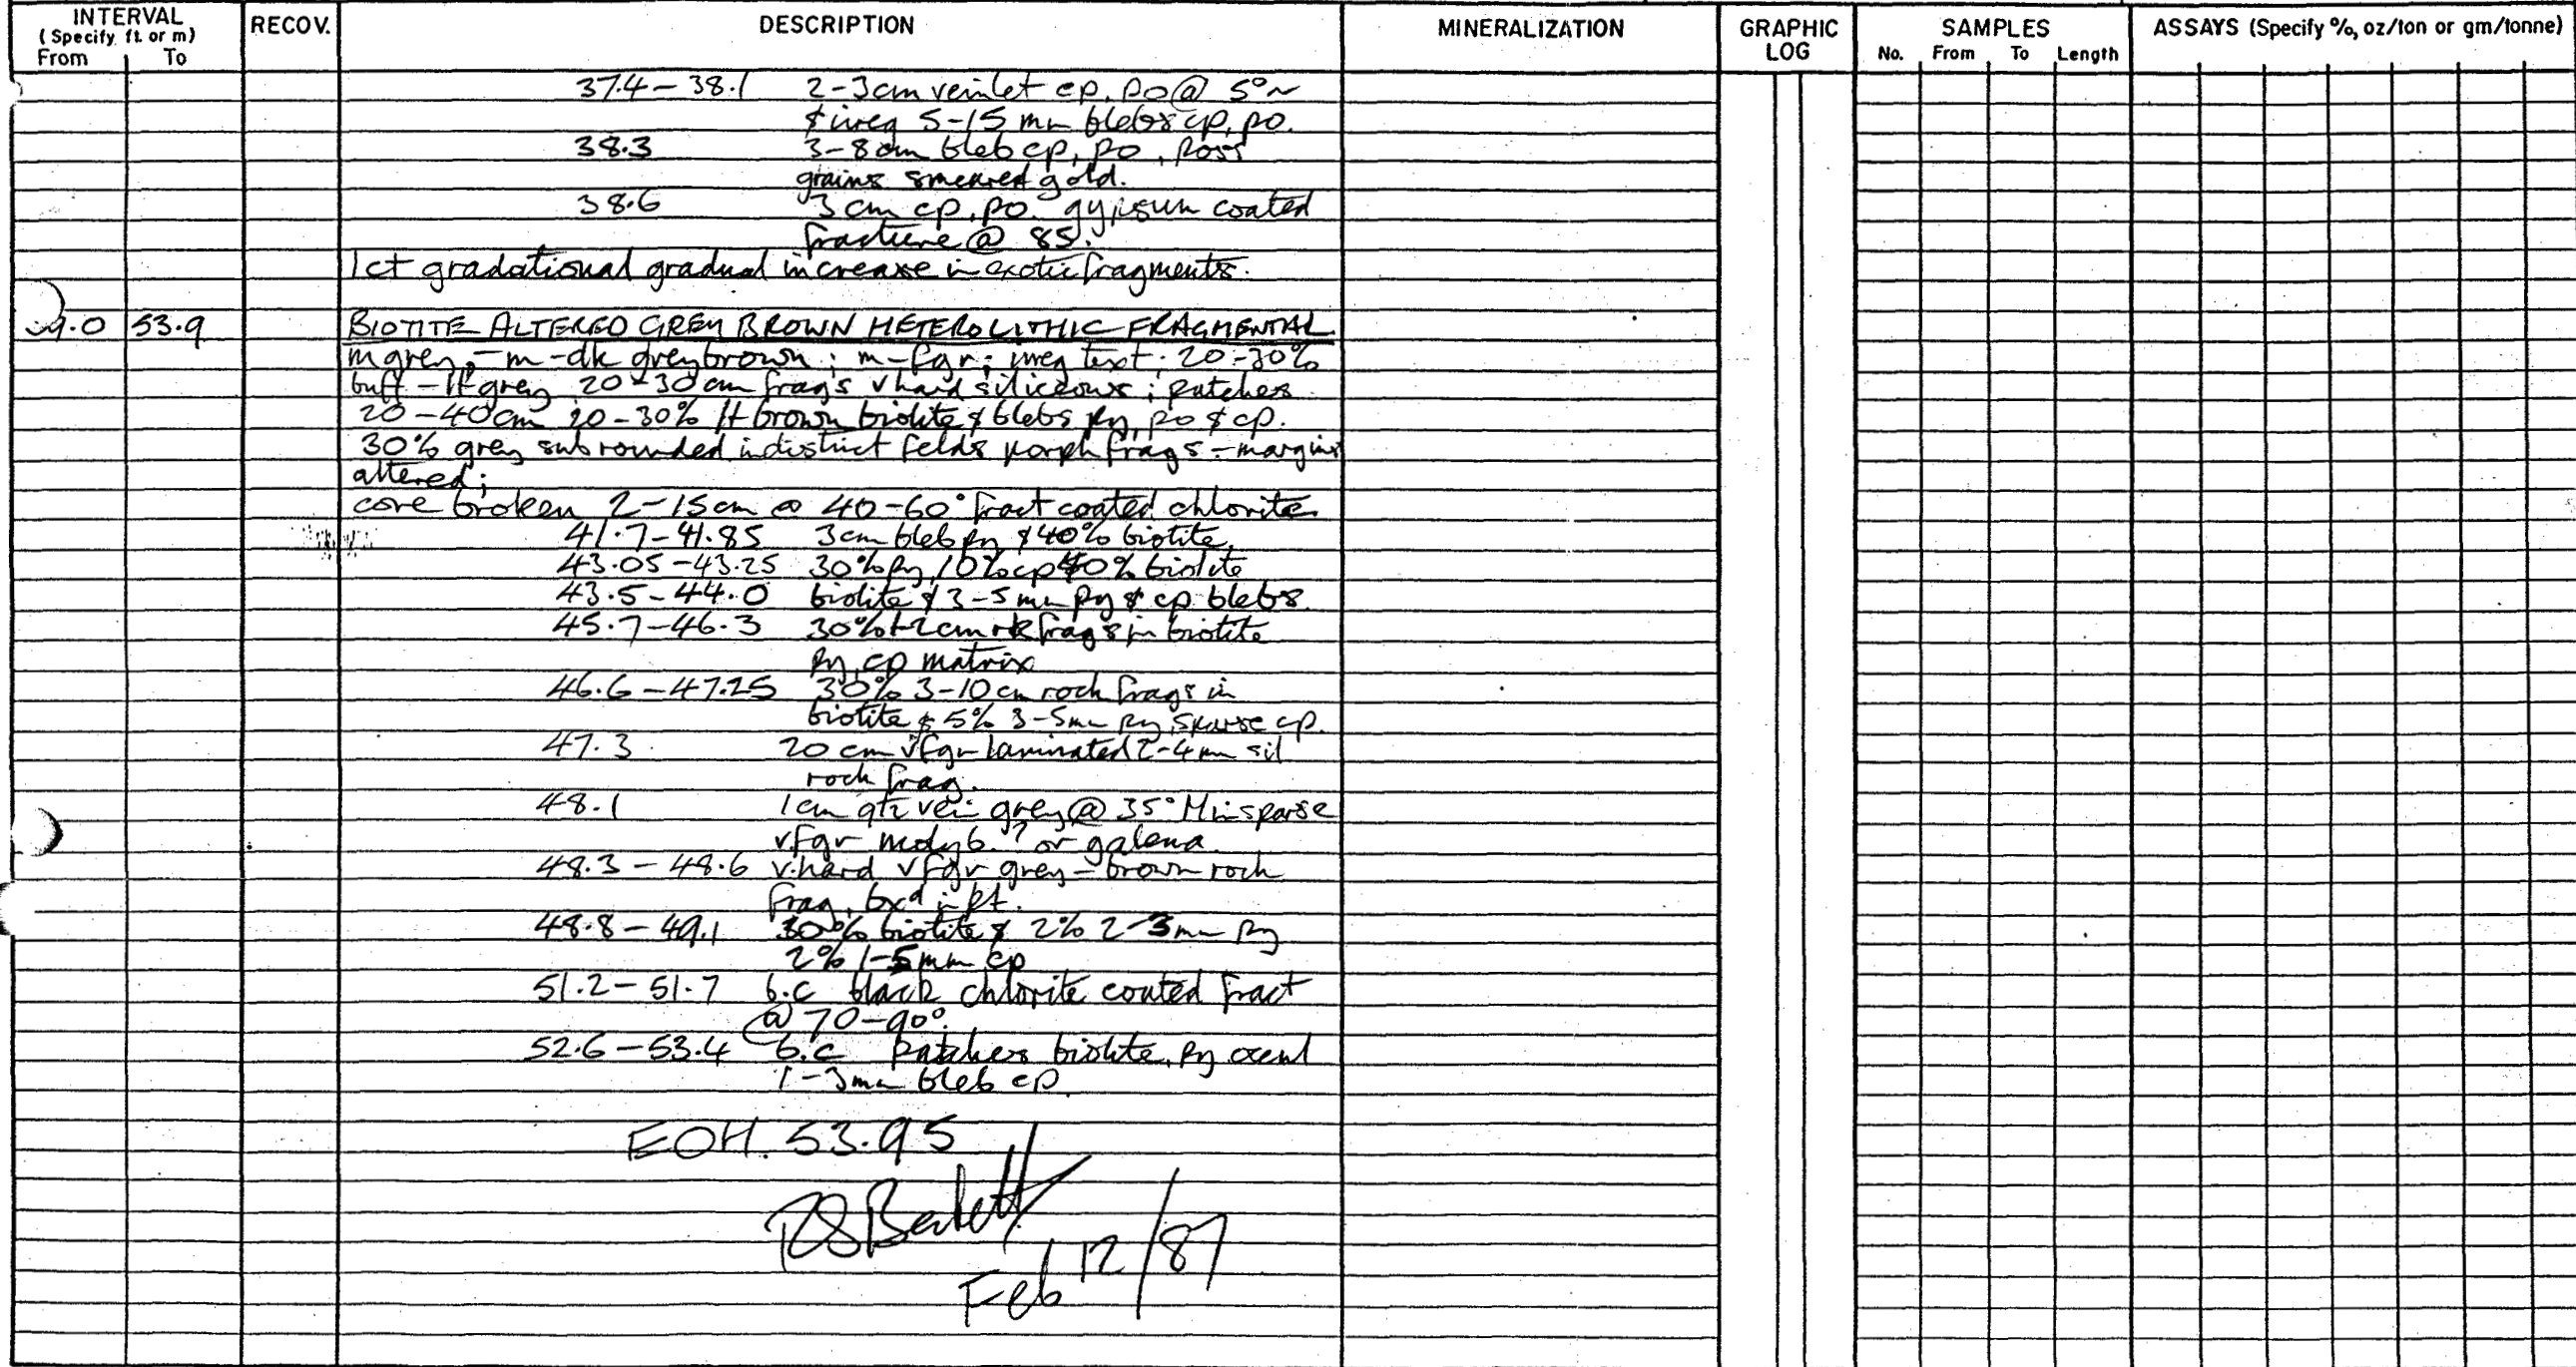 INTERVAL
(Specify ft. or m)
From To
RECOV.
DESCRIPTION
MINERALIZATION
GRAPHIC LOG
SAMPLES
No. From To Length
ASSAYS (Specify %, oz/ton or gm/tonne)
37.4-38.1 2-3cm veinlet cp, po @ 5°~
& irreg 5-15 mm blebs cp, po.
38.3 3-8cm bleb cp, po, poss
grains smeared gold.
38.6 3cm cp, po. gypsum coated
fracture @ 85.
lct gradational gradual increase in exotic fragments.
9.0 53.9 BIOTITE ALTERED GREY BROWN HETEROLITHIC FRAGMENTAL
m grey - m-dk grey brown; m-fgr; irreg text; 20-30%
buff - lt grey 20-30cm frags v hard siliceous; patches
20-40cm 20-30% lt brown biotite & blebs py, po & cp.
30% grey subrounded indistinct felds porph frags - margins
altered;
core broken 2-15cm @ 40-60° fract coated chlorite
41.7-41.85 3cm bleb py & 40% biotite
43.05-43.25 30% py, 10% cp 40% biotite
43.5-44.0 biotite & 3-5mm py & cp blebs
45.7-46.3 30% 1-2cm rk frags in biotite
py, cp matrix
46.6-47.25 30% 3-10cm rock frags in
biotite & 5% 3-5mm py, sparse cp.
47.3 20cm vfgr laminated 2-4mm sil
rock frag.
48.1 1cm qtz vein grey @ 35° Min sparse
vfgr molyb.? or galena
48.3-48.6 v.hard vfgr grey-brown rock
frag, bxd in pt.
48.8-49.1 30% biotite & 2% 2-3mm py
2% 1-5mm cp
51.2-51.7 b.c black chlorite coated fract
@ 70-90°
52.6-53.4 b.c patches biotite, py
1-3mm bleb cp
EOH. 53.95
Feb 12/87